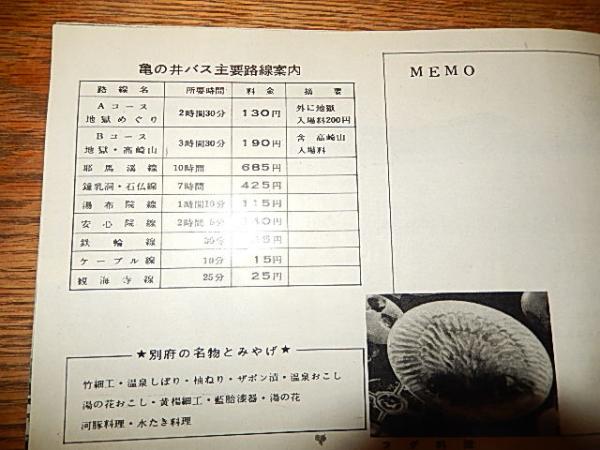 亀の井バス主要路線案内
路線名 所要時間 料金 摘要
Aコース 地獄めぐり 2時間30分 130円 外に地獄入場料200円
Bコース 地獄・高崎山 3時間30分 190円 含高崎山入場料
耶馬渓線 10時間 685円
鍾乳洞・石仏線 7時間 425円
湯布院線 1時間10分 115円
安心院線 2時間
鉄輪線
ケーブル線 10分 15円
観海寺線 25分 25円
★別府の名物とみやげ★
竹細工・温泉しぼり・柚ねり・ザボン漬・温泉おこし
湯の花おこし・黄楊細工・藍胎漆器・湯の花
河豚料理・水たき料理
MEMO
フグ料理